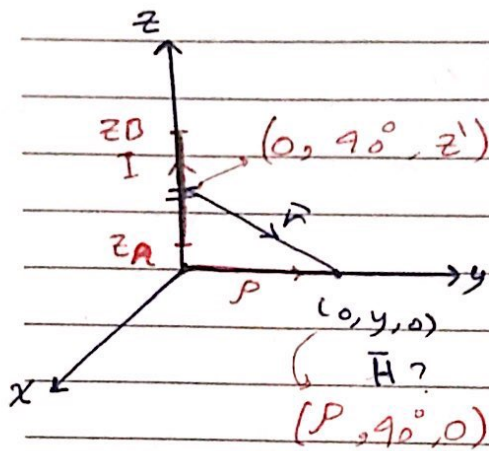 z
zB
I
(0, 90°, z')
R̄
zA
ρ
y
(0, y, 0)
x
H̄ ?
(ρ, 90°, 0)